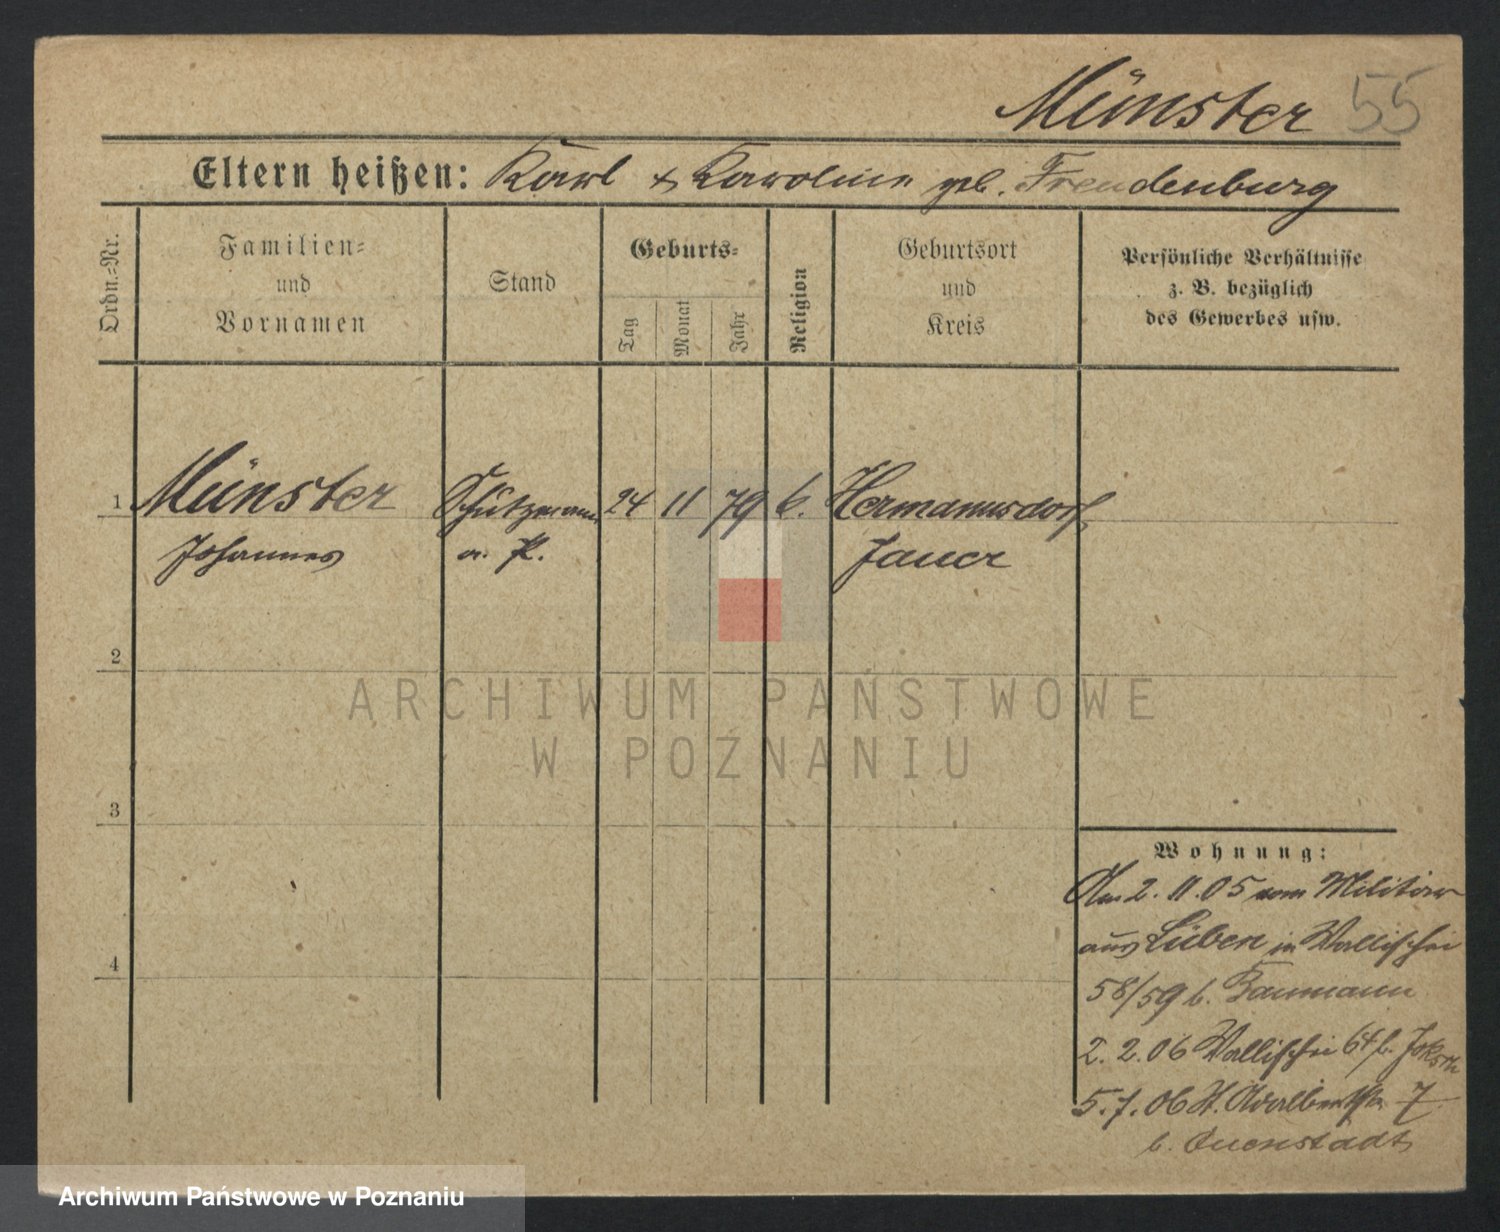 Münster 55
Eltern heißen: Karl & Karoline geb. Freudenburg
Ordn.-Nr.
Familien-
und
Vornamen
Stand
Geburts-
Tag
Monat
Jahr
Religion
Geburtsort
und
Kreis
Persönliche Verhältnisse
z. B. bezüglich
des Gewerbes usw.
1 Münster Schutzmann 24 11 79 k. Hermannsdorf
Johannes a. P. Jauer
2
ARCHIWUM PAŃSTWOWE
W POZNANIU
3
4
Wohnung:
Am 2. 11. 05 vom Militär
aus Lüben in Wallischei
58/59 b. Baumann
2. 2. 06 Wallischei 64 b.
5. 7. 06 St. Adalbertstr. 7
b. Quenstädt
Archiwum Państwowe w Poznaniu